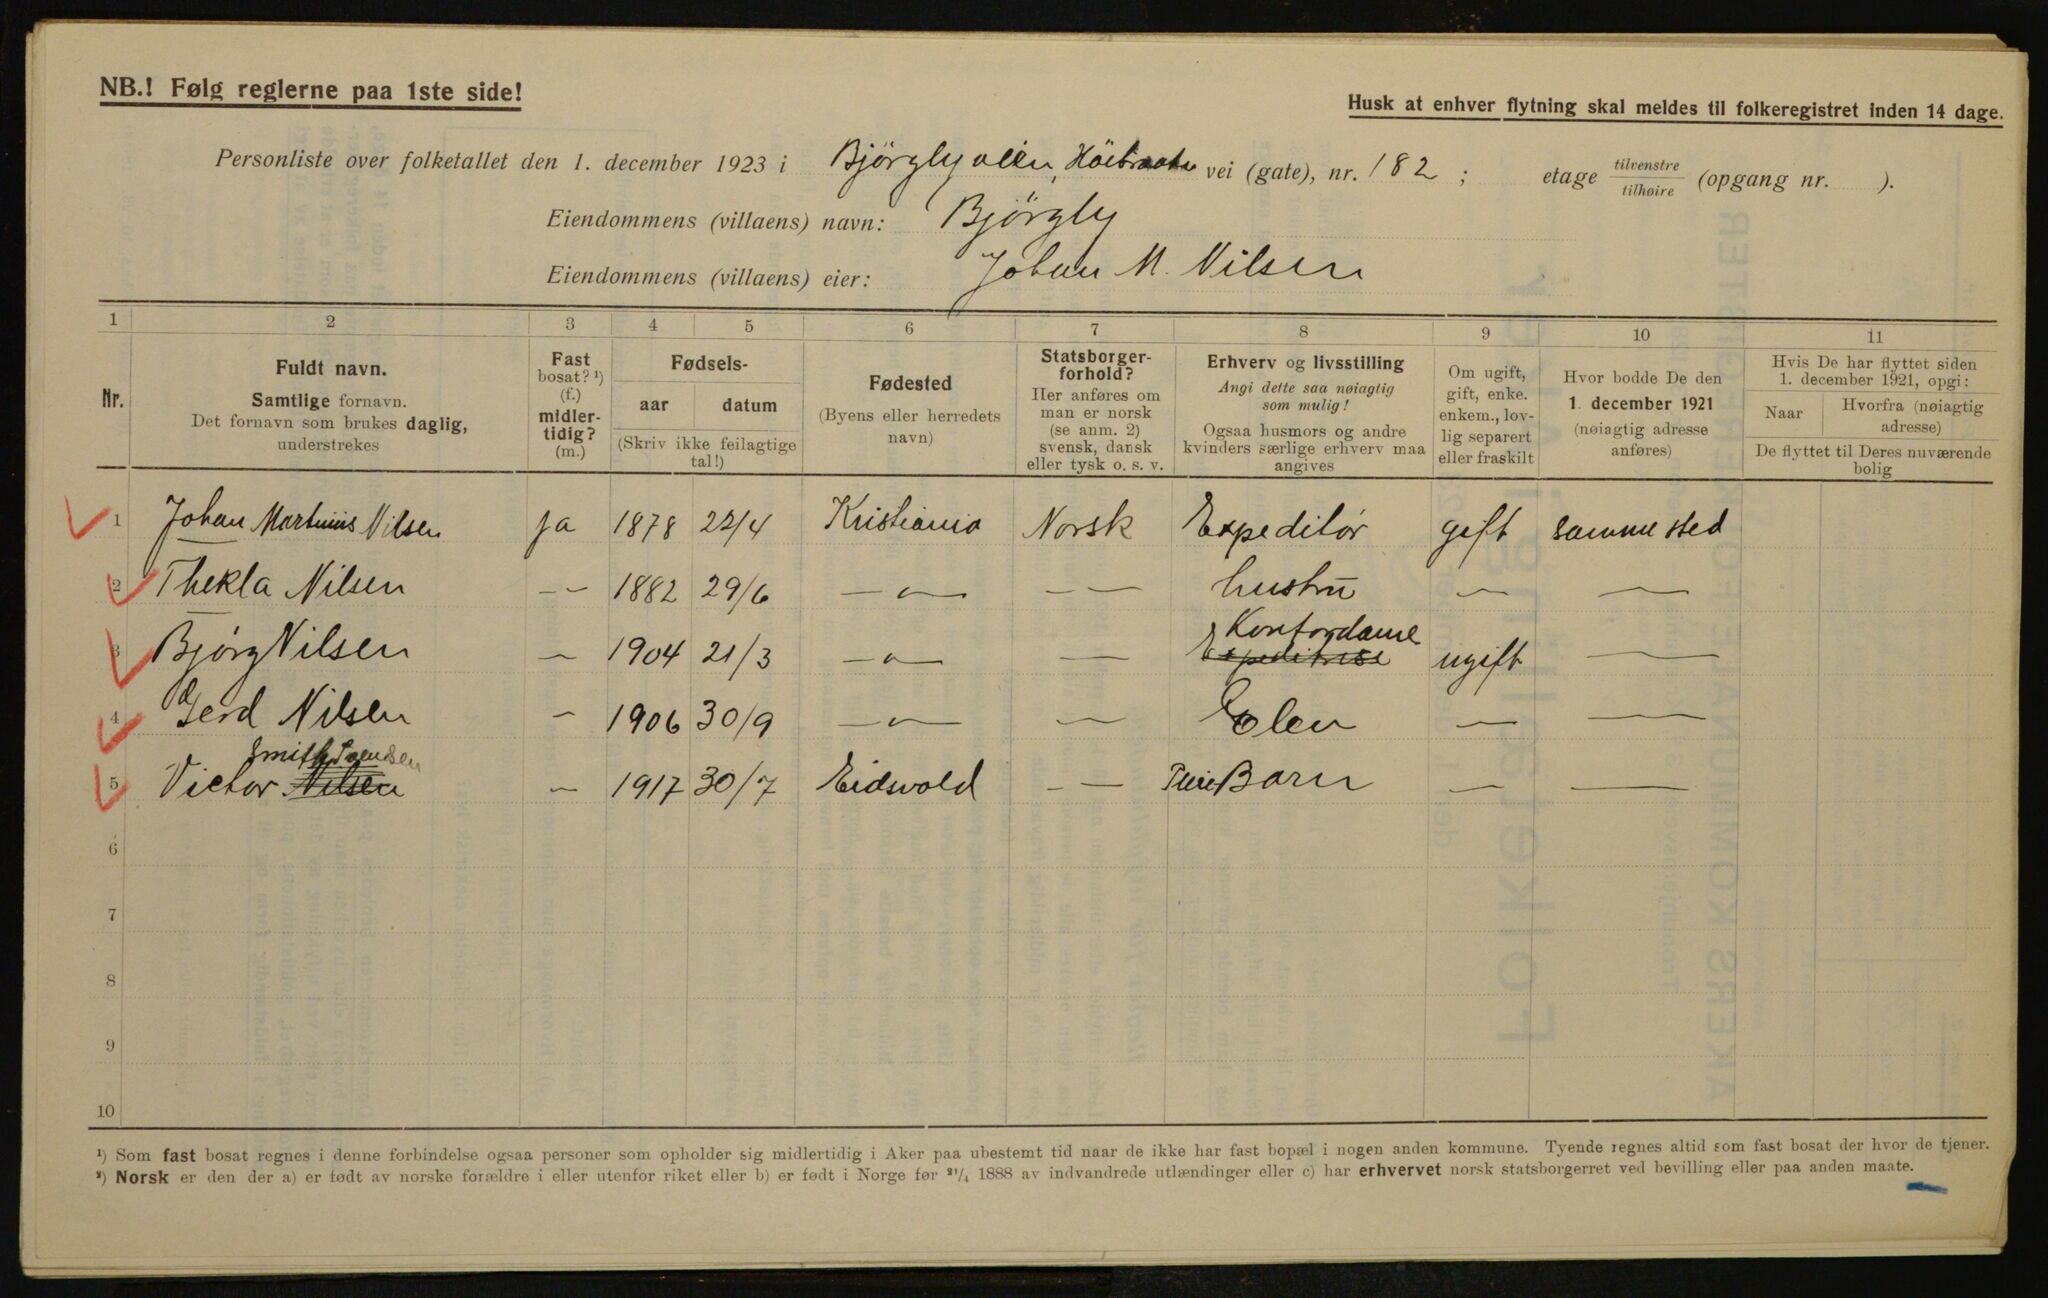 NB.! Følg reglerne paa 1ste side!
Husk at enhver flytning skal meldes til folkeregistret inden 14 dage.
Personliste over folketallet den 1. december 1923 i Bjørglyalléen, Höibraaten vei (gate), nr. 182 ; etage tilvenstre tilhøire (opgang nr. ).
Eiendommens (villaens) navn: Bjørgly
Eiendommens (villaens) eier: Johan M. Nilsen
1 2 3 4 5 6 7 8 9 10 11
Nr.
Fuldt navn.
Samtlige fornavn.
Det fornavn som brukes daglig,
understrekes
Fast
bosat? ¹)
(f.)
midler-
tidig?
(m.)
Fødsels-
aar datum
(Skriv ikke feilagtige
tal!)
Fødested
(Byens eller herredets
navn)
Statsborger-
forhold?
Her anføres om
man er norsk
(se anm. 2)
svensk, dansk
eller tysk o. s. v.
Erhverv og livsstilling
Angi dette saa nøiagtig
som mulig!
Ogsaa husmors og andre
kvinders særlige erhverv maa
angives
Om ugift,
gift, enke.
enkem., lov-
lig separert
eller fraskilt
Hvor bodde De den
1. december 1921
(nøiagtig adresse
anføres)
Hvis De har flyttet siden
1. december 1921, opgi:
Naar Hvorfra (nøiagtig
adresse)
De flyttet til Deres nuværende
bolig
1 Johan Martinius Nilsen ja 1878 22/4 Kristiania Norsk Expeditör gift samme sted
2 Thekla Nilsen — — 1882 29/6 — " — — — hustru — —
Kontordame
3 Bjørg Nilsen — 1904 21/3 — " — — Expeditrise ugift —
4 Gerd Nilsen — 1906 30/9 — " — — Elev — —
Smith Svendsen
5 Victor Nilsen — 1917 30/7 Eidsvold — — Pleie Barn — —
6
7
8
9
10
¹) Som fast bosat regnes i denne forbindelse ogsaa personer som opholder sig midlertidig i Aker paa ubestemt tid naar de ikke har fast bopæl i nogen anden kommune. Tyende regnes altid som fast bosat der hvor de tjener.
²) Norsk er den der a) er født av norske forældre i eller utenfor riket eller b) er født i Norge før ²¹/₄ 1888 av indvandrede utlændinger eller c) har erhvervet norsk statsborgerret ved bevilling eller paa anden maate.